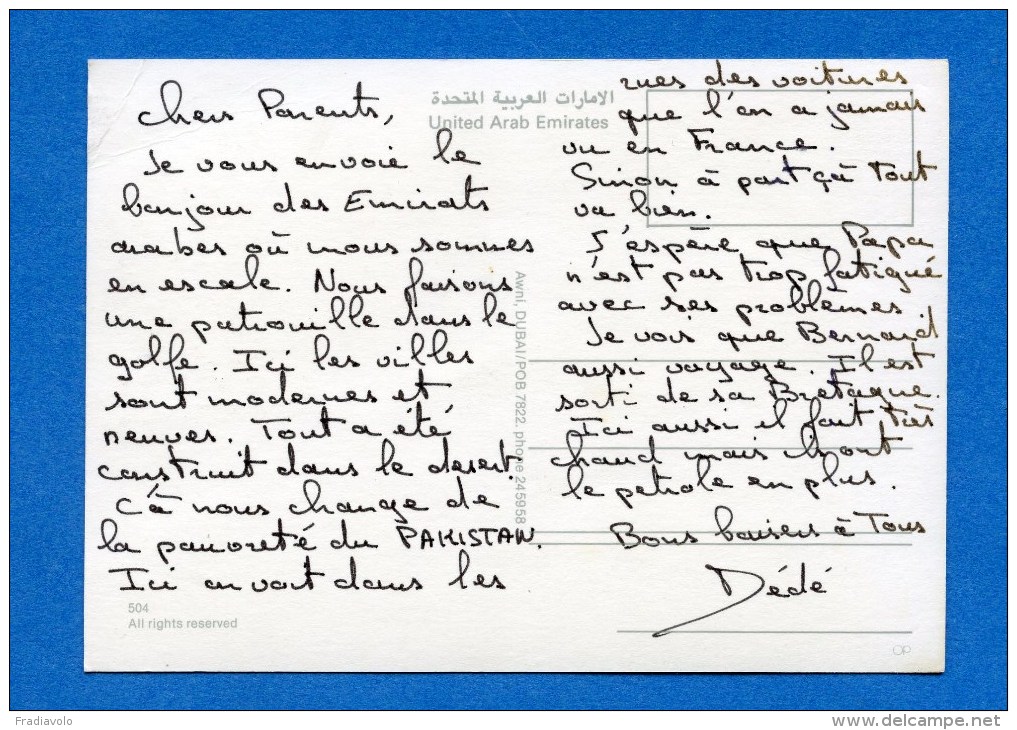 Chers Parents,
Je vous envoie le
bonjour des Emirats
arabes où nous sommes
en escale. Nous faisons
une patrouille dans le
golfe. Ici les villes
sont modernes et
neuves. Tout a été
construit dans le desert.
Cà nous change de
la pauvreté du PAKISTAN.
Ici on voit dans les
504
All rights reserved
الامارات العربية المتحدة
United Arab Emirates
Awni, DUBAI/POB 7822. phone 245958
rues des voitures
que l'on a jamais
vu en France.
Sinon, à part çà tout
va bien.
J'espère que Papa
n'est pas trop fatigué
avec ses problemes.
Je vois que Bernard
aussi voyage. Il est
sorti de sa Bretagne.
Ici aussi il fait très
chaud mais ils ont
le petrole en plus.
Bons baisers à Tous
Dédé
OP
Fradiavolo
www.delcampe.net